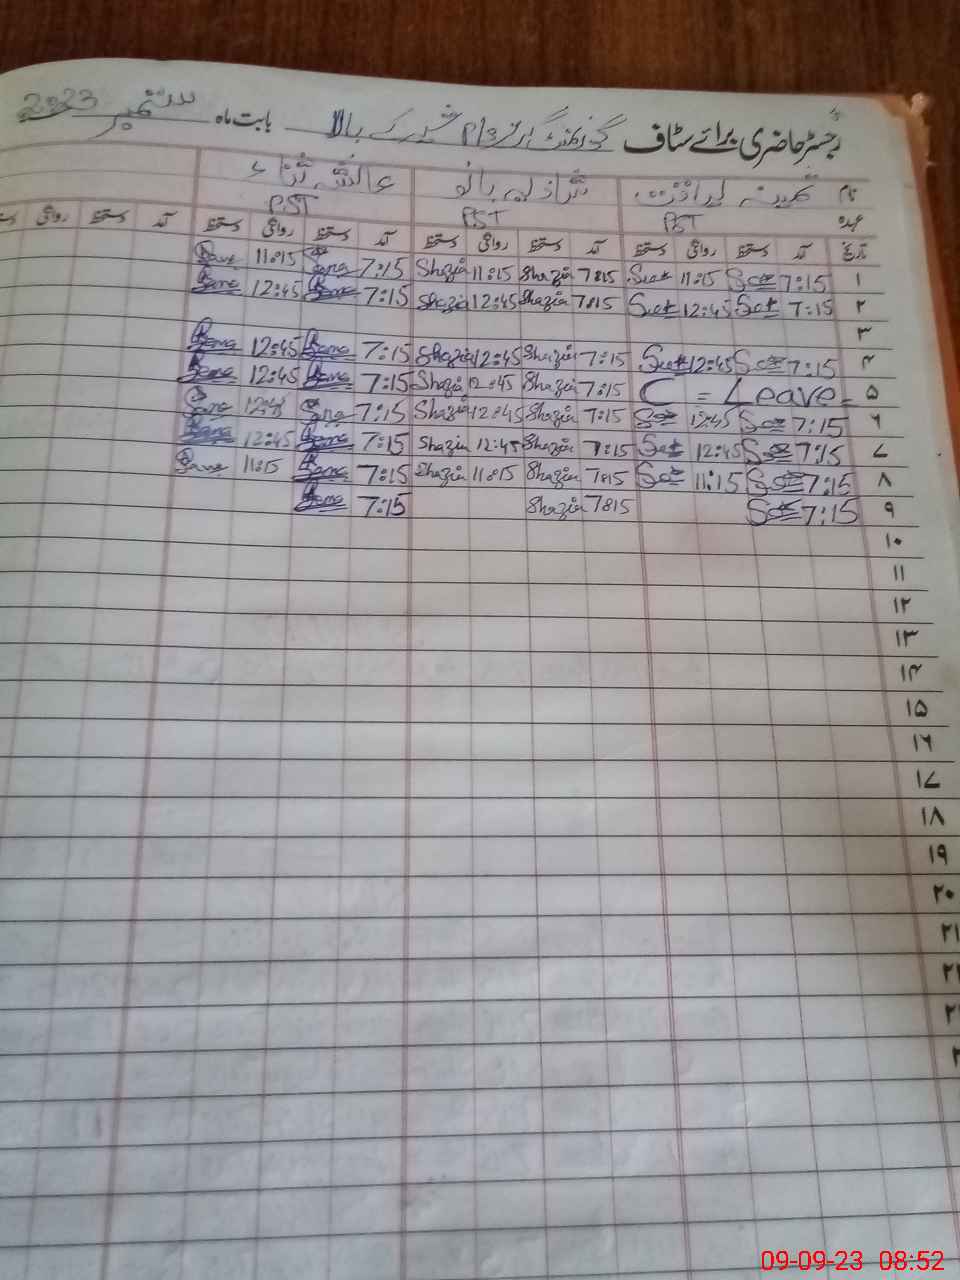 رجسٹر حاضری برائے سٹاف گورنمنٹ گرلز P/S شہر کے بالا بابت ماہ ستمبر 2023
نام شازیہ بانو عائشہ ثناء
عہدہ PST PST PST
تاریخ آمد دستخط روانگی دستخط آمد دستخط روانگی دستخط آمد دستخط روانگی دستخط آمد دستخط روانگی
۱ 7:15 11:15 7:15 Shazia 11:15 Shazia 7:15 Sana 11:15 Sana
۲ 7:15 12:45 7:15 Shazia 12:45 Shazia 7:15 Sana 12:45 Sana
۳
۴ 7:15 12:45 7:15 Shazia 12:45 Shazia 7:15 Sana 12:45 Sana
۵ C = Leave 7:15 Shazia 12:45 Shazia 7:15 Sana 12:45 Sana
۶ 7:15 12:45 7:15 Shazia 12:45 Shazia 7:15 Sana 12:45 Sana
۷ 7:15 12:45 7:15 Shazia 12:45 Shazia 7:15 Sana 12:45 Sana
۸ 7:15 11:15 7:15 Shazia 11:15 Shazia 7:15 Sana 11:15 Sana
۹ 7:15 7:15 Shazia 7:15 Sana
۱۰
۱۱
۱۲
۱۳
۱۴
۱۵
۱۶
۱۷
۱۸
۱۹
۲۰
۲۱
09-09-23 08:52